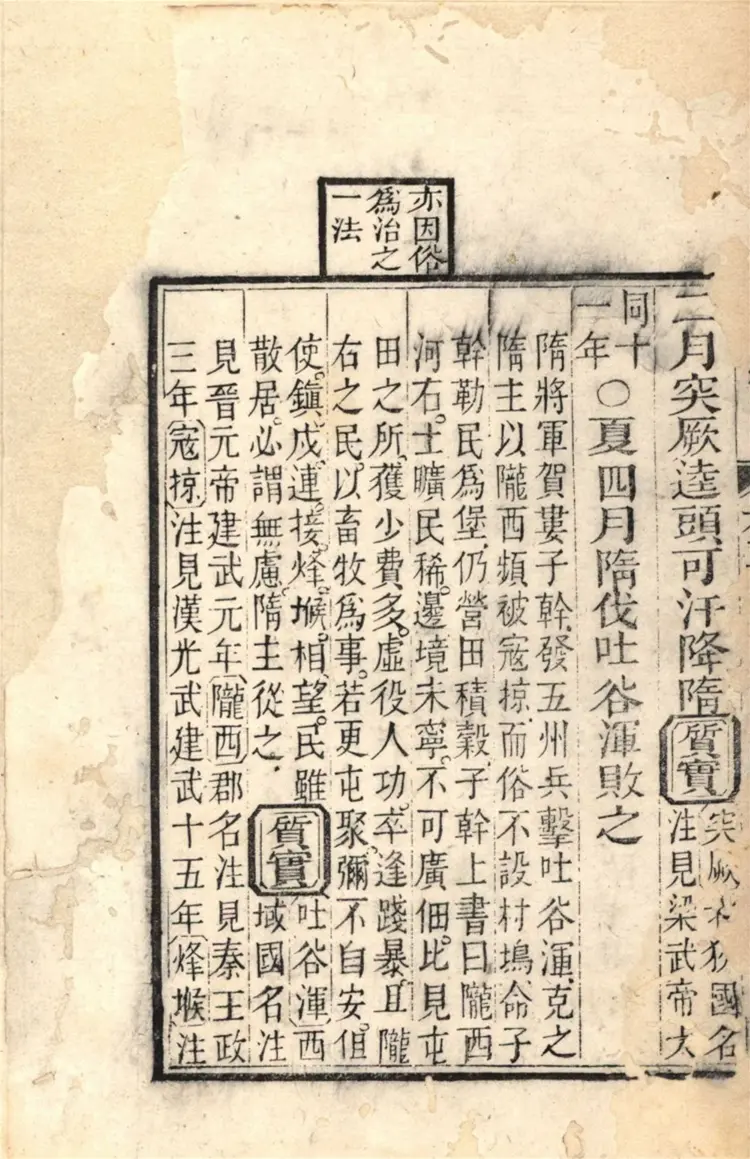 亦因俗
爲治之
一法
二月突厥逵頭可汗降隋質實
突厥狄國名
注見梁武帝大
同十
一年
〇夏四月隋伐吐谷渾敗之
隋將軍賀婁子幹發五州兵擊吐谷渾、克之
隋主以隴西頻被寇掠、而俗不設村塢、命子
幹勒民爲堡、仍營田積穀、子幹上書曰、隴西
河右。土曠民稀。邊境未寧。不可廣佃。比見屯
田之所。獲少費多。虛役人功。卒逢踐暴。且隴
右之民。以畜牧爲事。若更屯聚。彌不自安。但
使。鎮戍。連接。烽堠。相望。民雖
散居。必謂無慮。隋主從之、
質實
吐谷渾西
域國名注
見晉元帝建武元年隴西郡名注見秦王政
三年寇掠注見漢光武建武十五年烽堠注